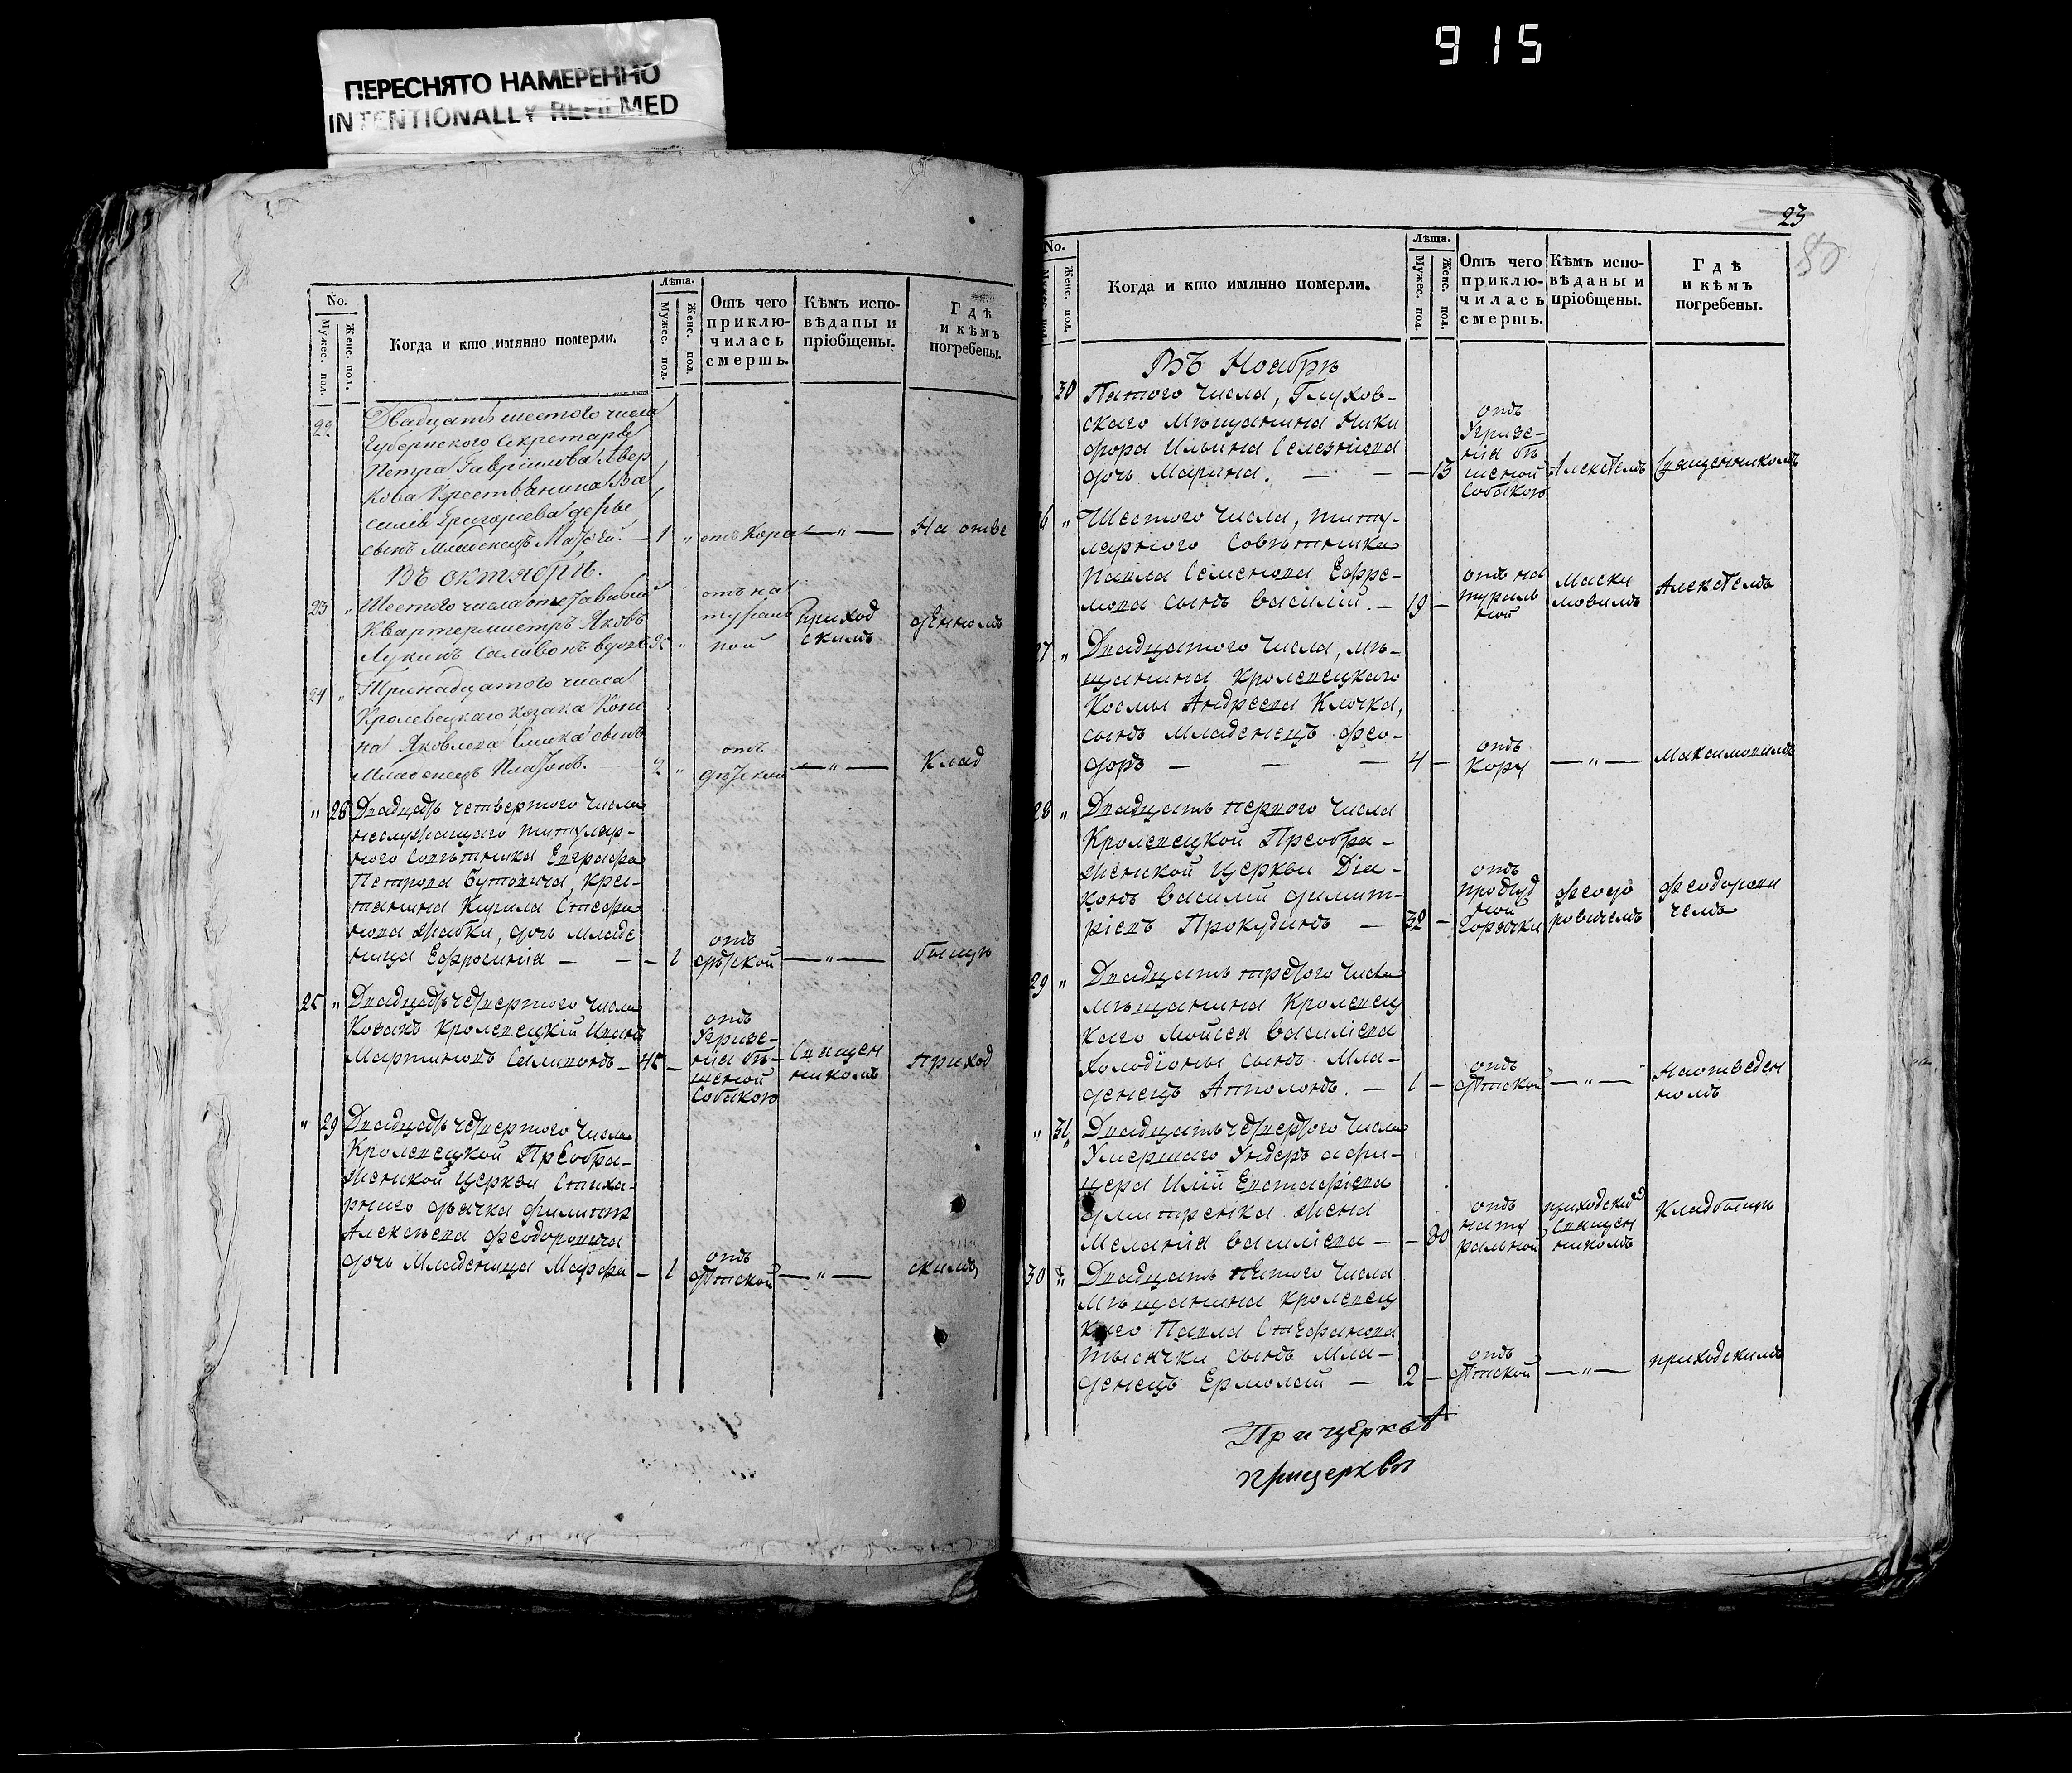 915
ПЕРЕСНЯТО НАМЕРЕННО
INTENTIONALLY REFILMED
No.
Мужес. пол.
Женс. пол.
Когда и кто имянно померли.
Лѣта.
Мужес. пол.
Женс. пол.
Отъ чего
приклю-
чилась
смерть.
Кѣмъ испо-
вѣданы и
пріобщены.
Гдѣ
и кѣмъ
погребены.
22
Двадцать шестого числа
Губернского Секретаря
Петра Гавріилова Авер
кова Крестьянина Ва
силія Григорьева
сынъ младенецъ Матѳей. — 1 „ отъ кора — „ — На отве
Въ октябри.
23 „ Шестого числа отставный
Квартермистръ Яковъ
Лукинъ Селивонъ
отъ на
турал
ной
Приход
скимъ
денномъ
24 „ Тринадцатого числа
Кролевецкаго козака Коно
на Яковлева сынъ
Младенецъ Платонъ. — 2 „
отъ
дѣтской
— „ — Клад
„ 28 Двадцать четвертого числа
неслужащаго титуляр-
ного Совѣтника Евграфа
Петрова Бутовича, крес-
танина Кирила Стефа
нова Жабки, дочь младе
ница Ефросинія — — — 1
отъ
дѣтской
— „ — бищи
25 „ Двадцать четвертого числа
Козакъ Кролевецкій Иванъ
Мартиновъ Селивонъ — 45 —
отъ
Угризе-
нія бѣ-
шеной
Собакою
Священ
никомъ
приход
„ 29 Двадцать четвертого числа
Кролевецкой Преобра-
женской Церкви Стиха-
рного дьячка Филиппа
Алексѣева Феодоровича
дочь Младеница Марфа — 1
отъ
дѣтской
— „ — скимъ,
23
No.
Мужес. пол.
Женс. пол.
Когда и кто имянно померли.
Лѣта.
Мужес. пол.
Женс. пол.
Отъ чего
приклю-
чилась
смерть.
Кѣмъ испо-
вѣданы и
пріобщены.
Гдѣ
и кѣмъ
погребены.
Въ Ноябри
30 Пятого числа, Глухов-
скаго Мѣщанина Ники
фора Ильина Селезніова
дочь Марина. — — — 13
отъ
Угризе-
нія бѣ
шеной
Собакою
Алексѣемъ Священникомъ
26 „ Шестого числа, титу-
лярного Совѣтника
Павла Семенова Ефре-
мова сынъ Василій. — 19 —
отъ на
турал
ной
Макси
мовимъ
Алексѣемъ
27 „ Двадцатого числа, мѣ-
щанина Кролевецкаго
Космы Андреева Клочка,
сынъ младенецъ Фео-
доръ — — — 4 —
отъ
кору
— „ — Максимовимъ
28 „ Двадцать первого числа
Кролевецкой Преобра-
женской Церкви Діа-
конъ Василий Димит-
ріевъ Прокудинъ — 32 —
отъ
простуд
ной
горячки
Феодо
ровичемъ
Феодорови
чемъ
29 „ Двадцать третого числа
Мѣщанина Кролевец
каго Мойсея Василіева
Холодіоны сынъ Мла-
денецъ Антолонъ. — 1 —
отъ
дѣтской
— „ — На отведен
номъ
„ 31 Двадцать четвертого числа
Умершаго Ундеръ афи-
цера Иліи Евстафіева
Дмитренка жена
Меланія Василіева — — 80
отъ
нату
ральной
приходским
Священ
никомъ
Кладбищи
30 „ Двадцать пятого числа
Мѣщанина Кролевец
каго Павла Стефанова
тысячки сынъ Мла-
денецъ Ермолай — 2 —
отъ
дѣтской
— „ — приходскимъ
При церквѣ
При церкви